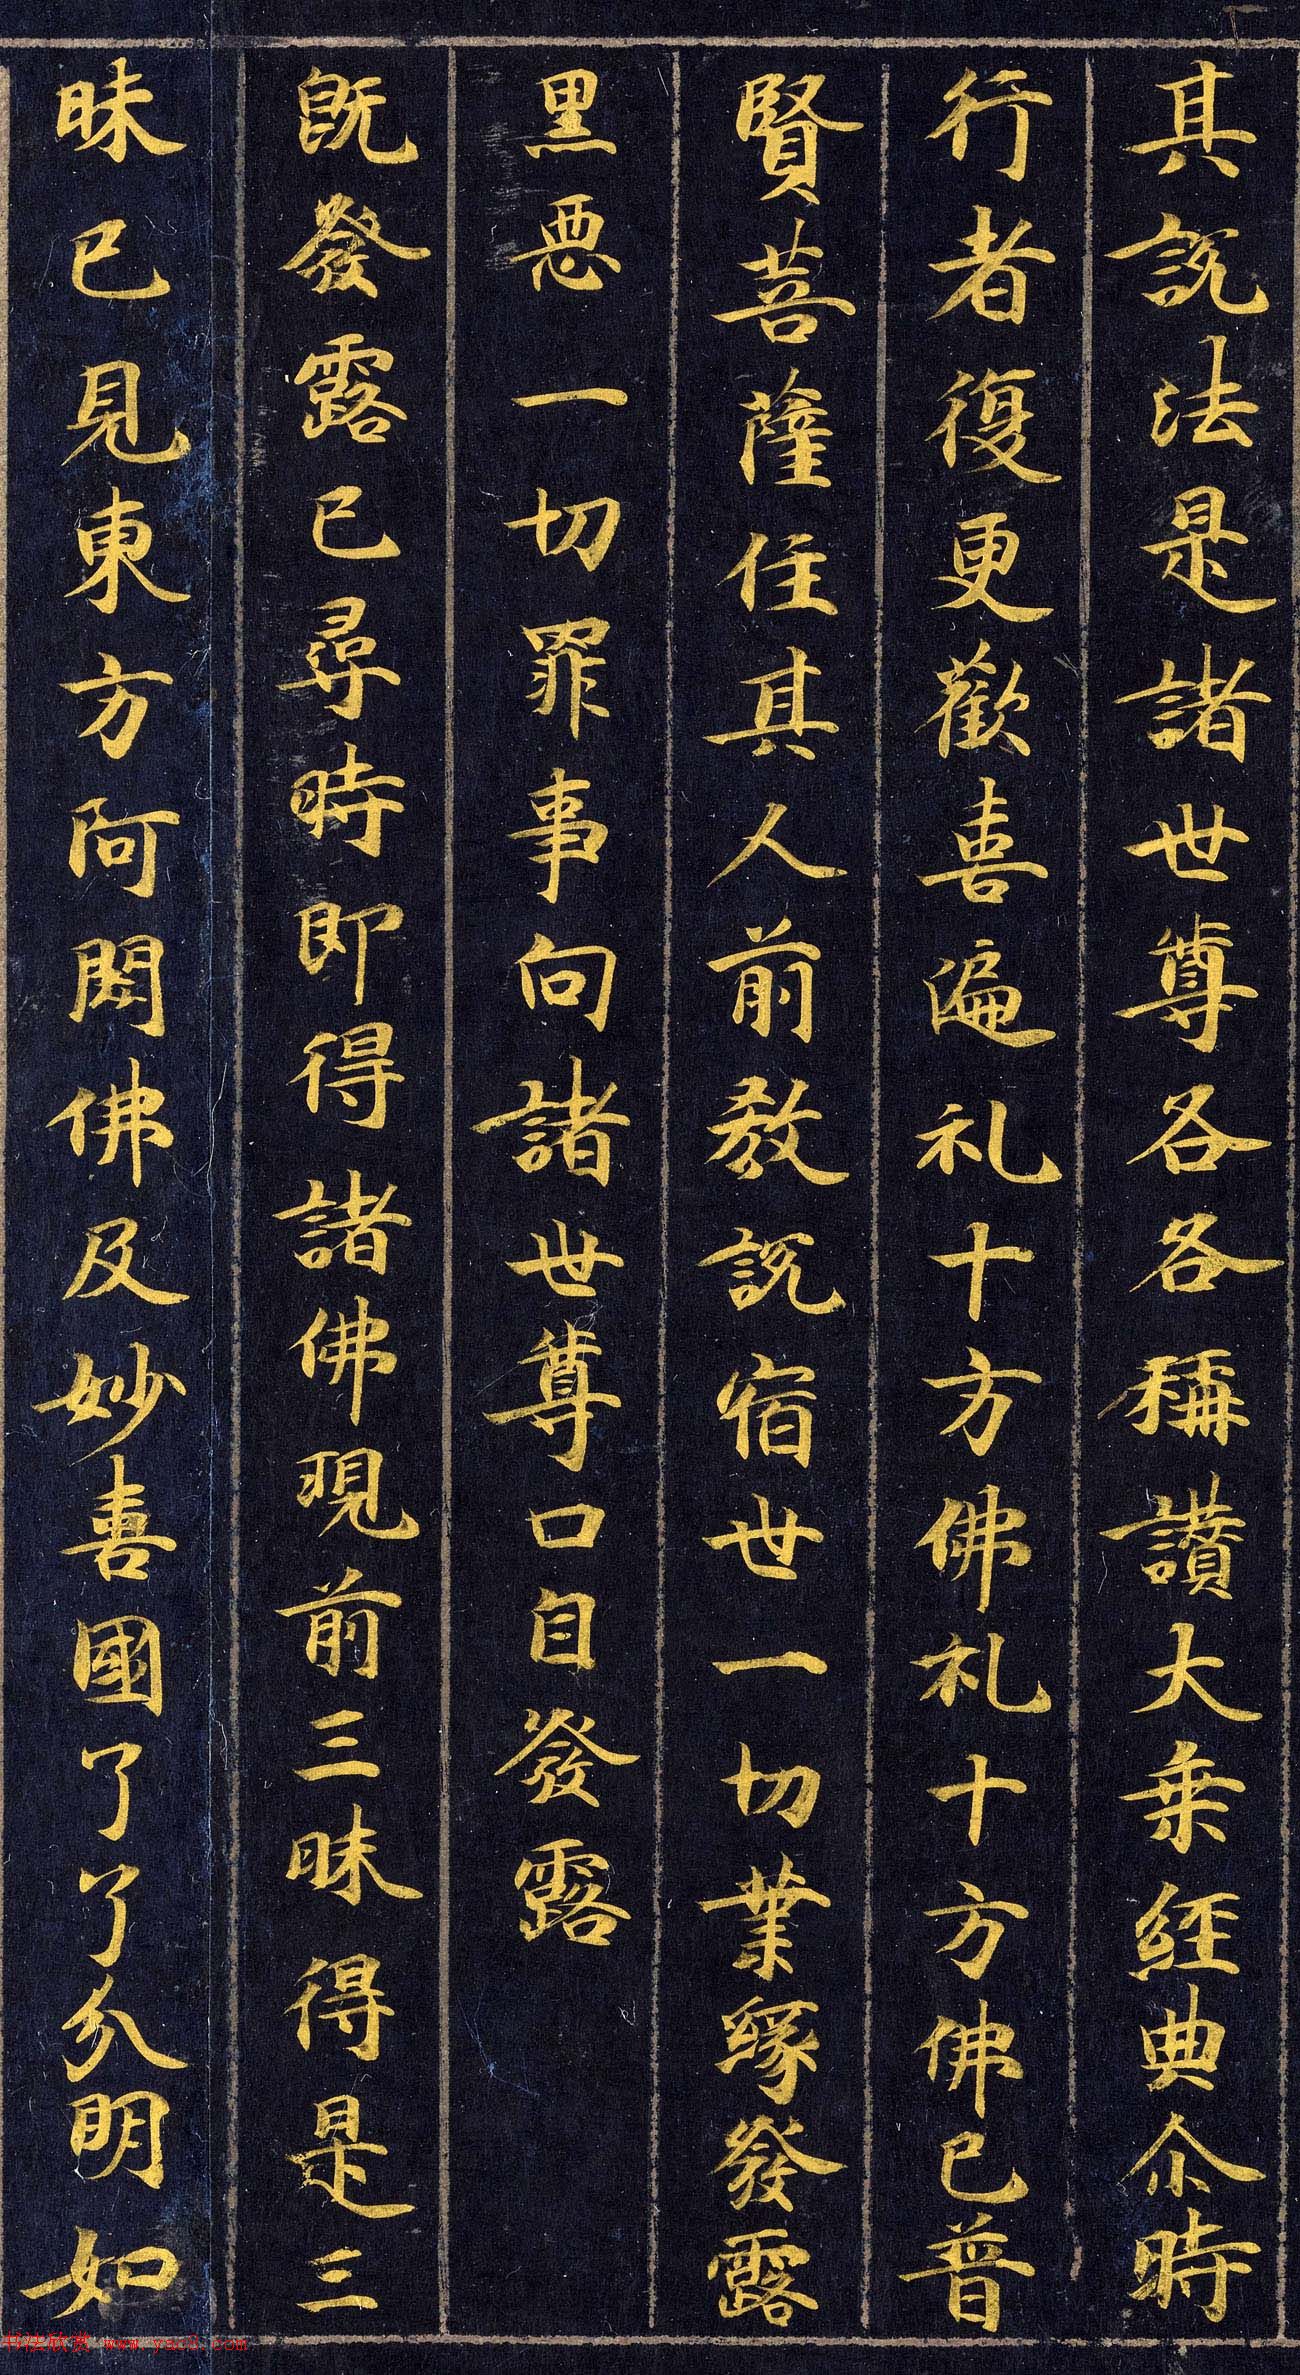 其說法是諸世尊各各稱讚大乘經典尒時
行者復更歡喜遍礼十方佛礼十方佛已普
賢菩薩住其人前教說宿世一切業緣發露
黑惡一切罪事向諸世尊口自發露
既發露已尋時即得諸佛現前三昧得是三
昧已見東方阿閦佛及妙喜國了了分明如
书法欣赏 www.yac8.com